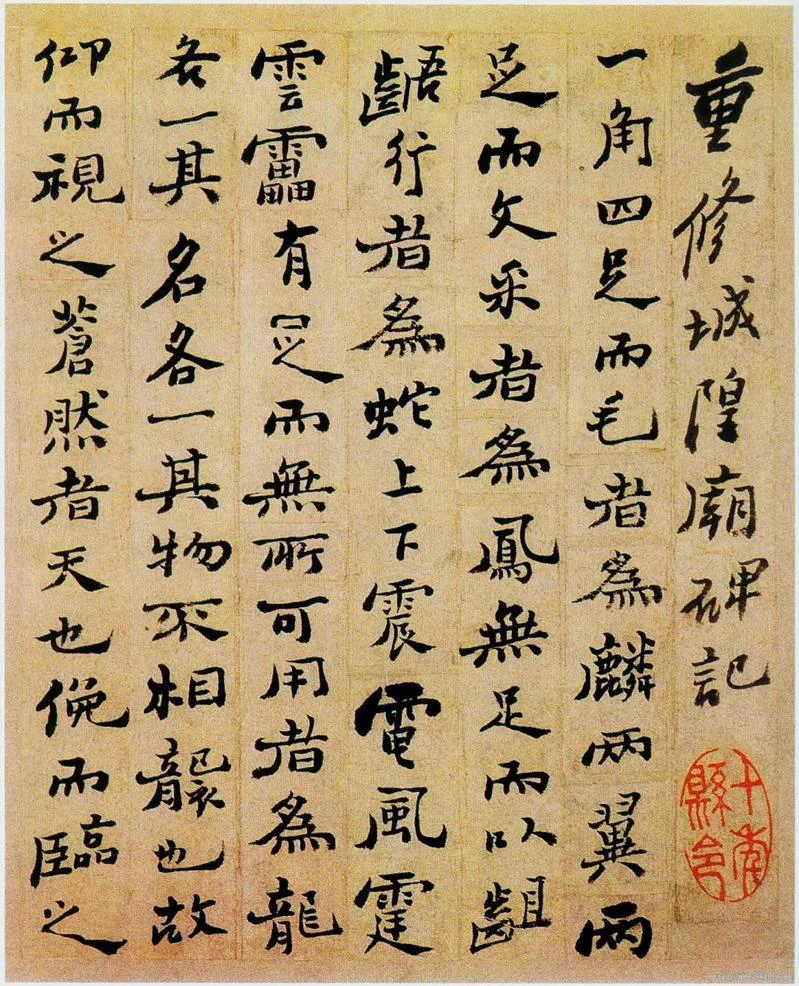 重修城隍廟碑記
十年縣令
一角四足而毛者為麟兩翼兩
足而文采者為鳳無足而以齟
齬行者為蛇上下震電風霆
雲靁有足而無所可用者為龍
各一其名各一其物不相襲也故
仰而視之蒼然者天也俛而臨之